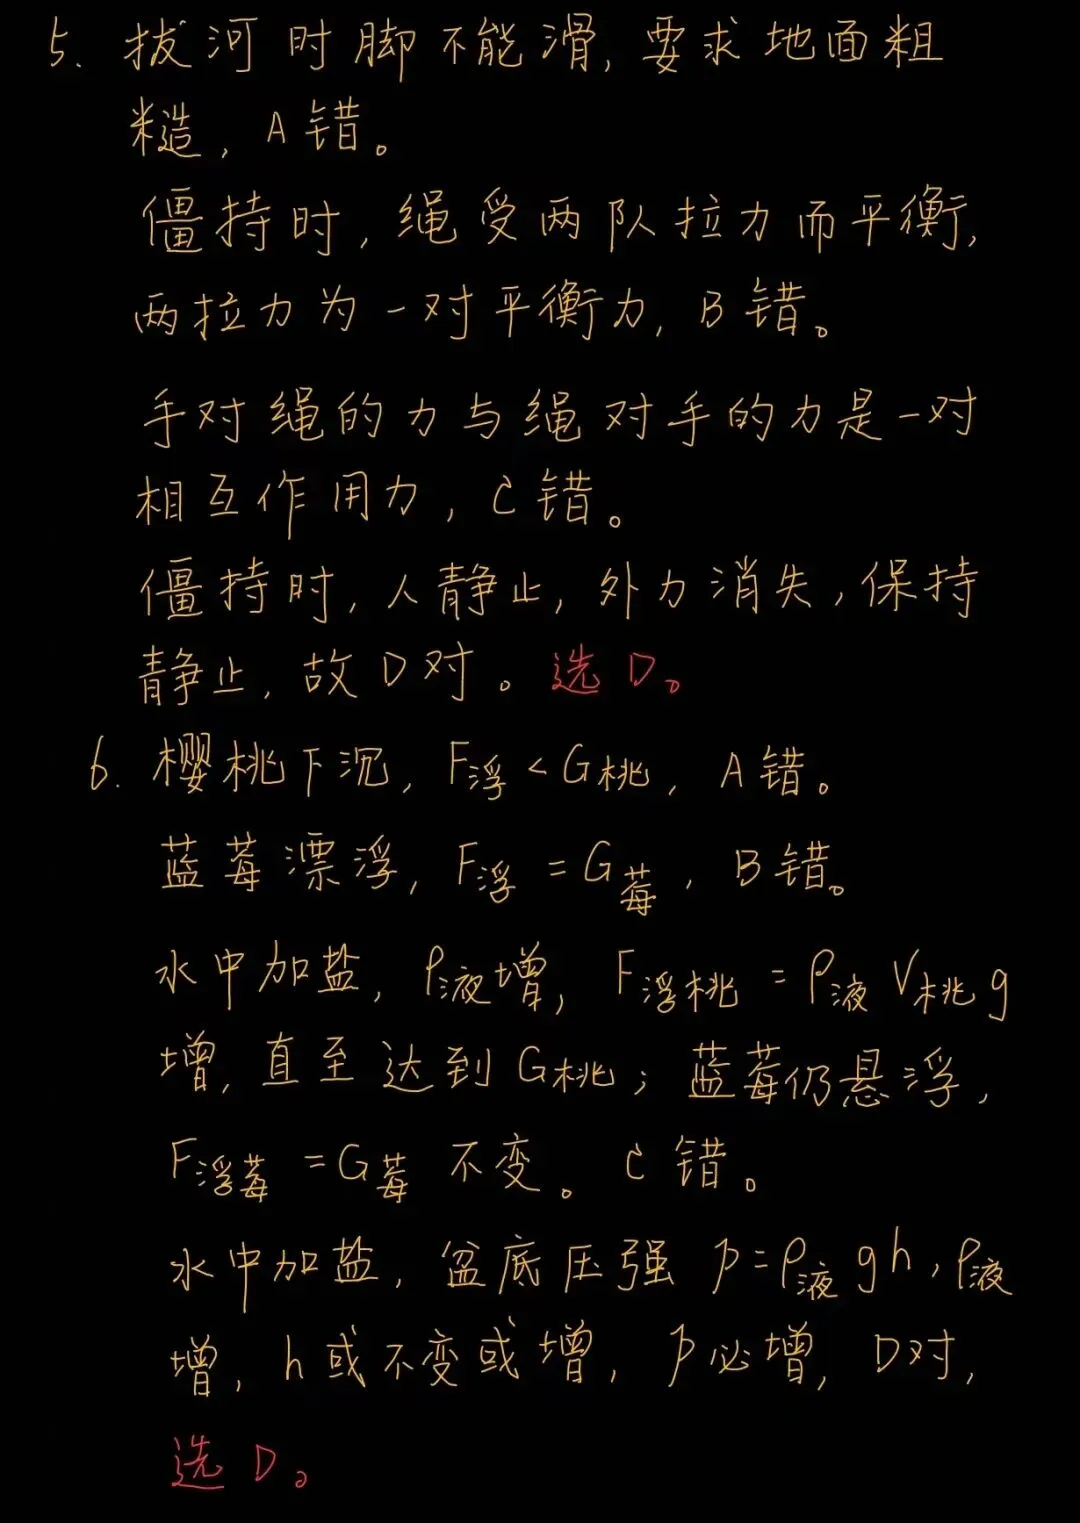 5. 拔河时脚不能滑,要求地面粗
糙,A错。
僵持时,绳受两队拉力而平衡,
两拉力为一对平衡力,B错。
手对绳的力与绳对手的力是一对
相互作用力,C错。
僵持时,人静止,外力消失,保持
静止,故D对。选D。
6. 樱桃下沉,F浮<G桃,A错。
蓝莓漂浮,F浮=G莓,B错。
水中加盐,ρ液增,F浮桃=ρ液V桃g
增,直至达到G桃;蓝莓仍悬浮,
F浮莓=G莓不变。C错。
水中加盐,盆底压强p=ρ液gh,ρ液
增,h或不变或增,p必增,D对,
选D。